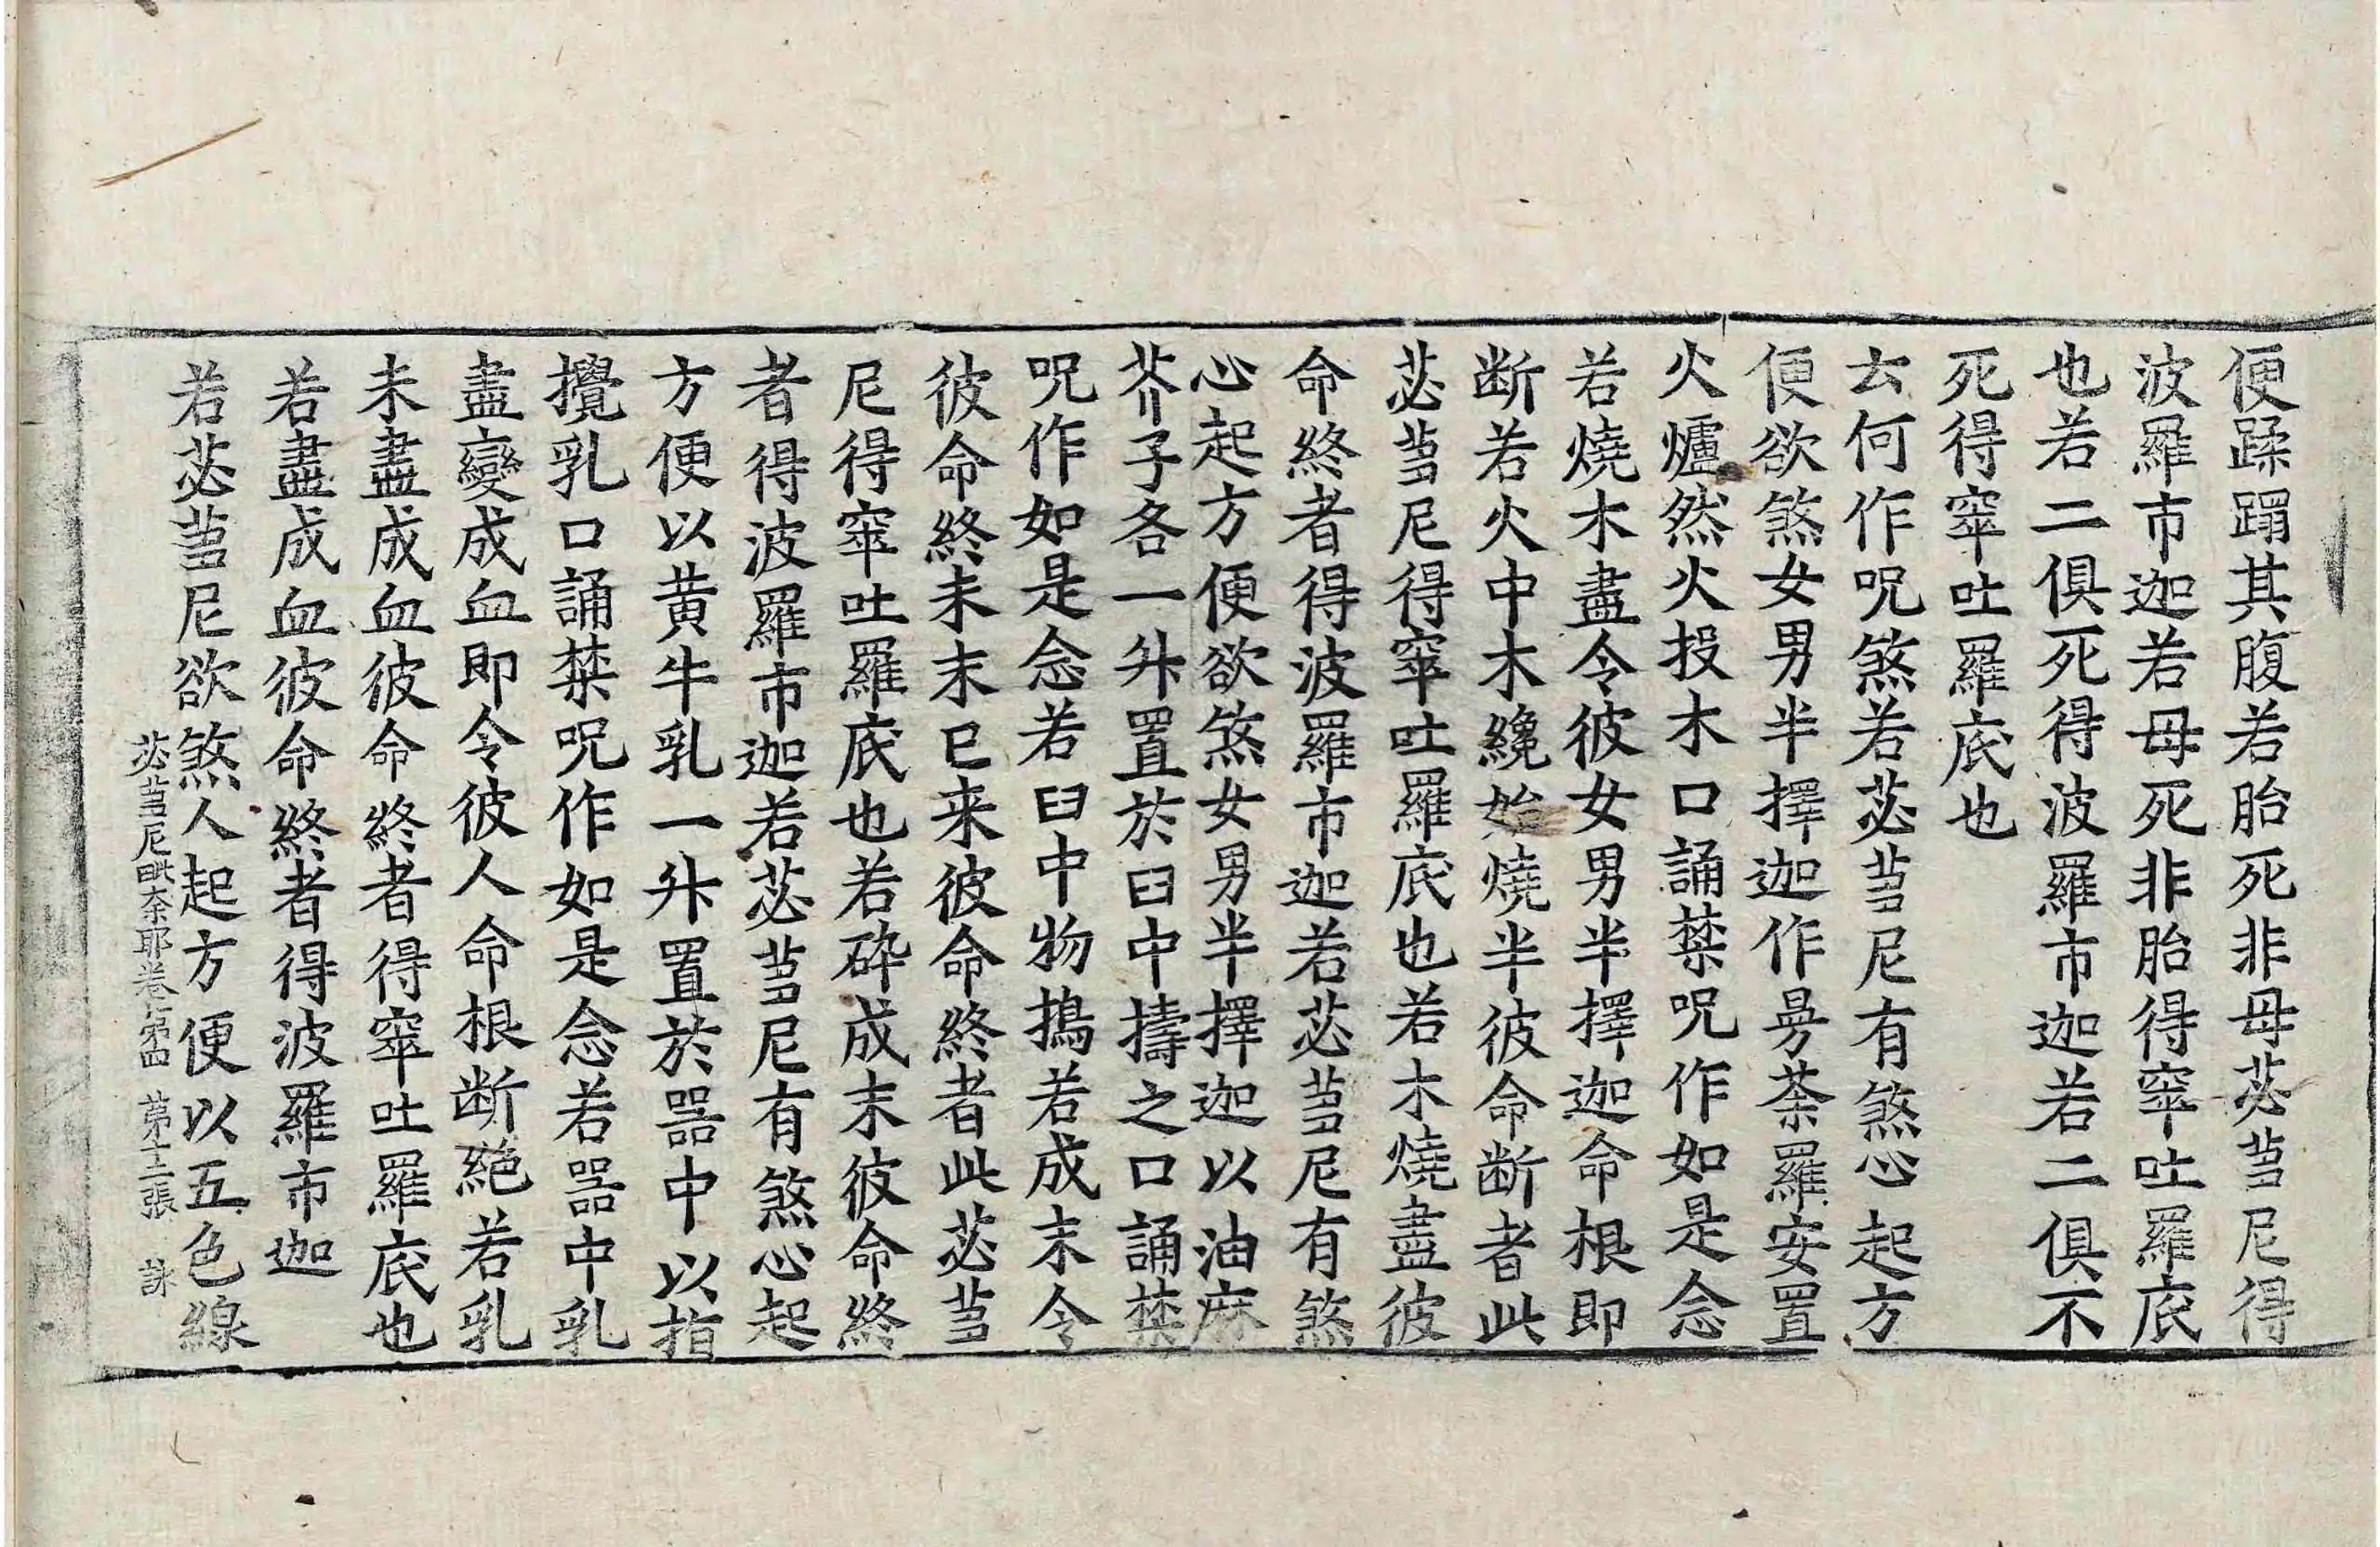 便蹂蹋其腹若胎死非母苾蒭尼得
波羅市迦若母死非胎得窣吐羅底
也若二俱死得波羅市迦若二俱不
死得窣吐羅底也
云何作呪煞若苾蒭尼有煞心起方
便欲煞女男半擇迦作曼荼羅安置
火爐然火投木口誦禁呪作如是念
若燒木盡令彼女男半擇迦命根即
断若火中木纔始燒半彼命断者此
苾蒭尼得窣吐羅底也若木燒盡彼
命終者得波羅市迦若苾蒭尼有煞
心起方便欲煞女男半擇迦以油麻
芥子各一升置於臼中擣之口誦禁
呪作如是念若臼中物擣若成末令
彼命終未末已来彼命終者此苾蒭
尼得窣吐羅底也若碎成末彼命終
者得波羅市迦若苾蒭尼有煞心起
方便以黄牛乳一升置於器中以指
攪乳口誦禁呪作如是念若器中乳
盡變成血即令彼人命根断絕若乳
未盡成血彼命終者得窣吐羅底也
若盡成血彼命終者得波羅市迦
若苾蒭尼欲煞人起方便以五色線
苾蒭尼毗柰耶卷第四 第十二張 詠